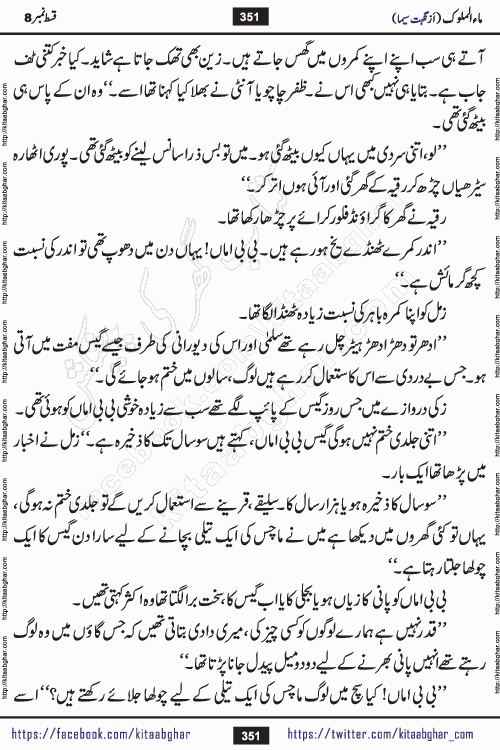 ماء الملوک (از نگہت سیما) 351 قسط نمبر 8
آتے ہی سب اپنے اپنے کمروں میں گھس جاتے ہیں۔ زین بھی تھک جاتا ہے شاید۔ کیا خبر کتنی ٹف
جاب ہے۔ بتایا ہی نہیں کبھی اس نے۔ ظفر چاچو یا آنٹی نے بھلا کیا کہنا تھا اسے۔‘‘ وہ ان کے پاس ہی
بیٹھ گئی تھی۔
’’لو، اتنی سردی میں یہاں کیوں بیٹھ گئی ہو۔ میں تو بس ذرا سانس لینے کو بیٹھ گئی تھی۔ پوری اٹھارہ
سیڑھیاں چڑھ کر رقیہ کے گھر گئی اور آئی ہوں اتر کر۔‘‘
رقیہ نے گھر کا گراؤنڈ فلور کرائے پر چڑھا رکھا تھا۔
’’اندر کمرے ٹھنڈے یخ ہو رہے ہیں۔ بی بی اماں! یہاں دن میں دھوپ تھی تو اندر کی نسبت
کچھ گرمائش ہے۔‘‘
زمل کو اپنا کمرہ باہر کی نسبت زیادہ ٹھنڈا لگا تھا۔
’’ادھر تو دھڑا دھڑ ہیٹر چل رہے تھے سلمٰی اور اس کی دیورانی کی طرف جیسے گیس مفت میں آتی
ہو۔ جس بے دردی سے اس کا استعمال کر رہے ہیں لوگ، سالوں میں ختم ہو جائے گی۔‘‘
زکی دروازے میں جس روز گیس کے پائپ لگے تھے سب سے زیادہ خوشی بی بی اماں کو ہوئی تھی۔
’’اتنی جلدی ختم نہیں ہو گی گیس بی بی اماں، کہتے ہیں سو سال تک کا ذخیرہ ہے۔‘‘ زمل نے اخبار
میں پڑھا تھا ایک بار۔
’’سو سال کا ذخیرہ ہو یا ہزار سال کا۔ سلیقے، قرینے سے استعمال کریں گے تو جلدی ختم نہ ہو گی،
یہاں تو کئی گھروں میں دیکھا ہے میں نے ماچس کی ایک تیلی بچانے کے لیے سارا دن گیس کا ایک
چولھا جلتا رہتا ہے۔‘‘
بی بی اماں کو پانی کا زیاں ہو یا بجلی کا یا اب گیس کا سخت برا لگتا تھا وہ اکثر کہتی تھیں۔
’’قدر نہیں ہے ہمارے لوگوں کو کسی چیز کی، میری دادی بتاتی تھیں کہ جس گاؤں میں وہ لوگ
رہتے تھے انہیں پانی بھرنے کے لیے دو دو میل پیدل جانا پڑتا تھا۔‘‘
’’بی بی اماں! کیا سچ میں لوگ ماچس کی ایک تیلی کے لیے چولھا جلائے رکھتے ہیں؟‘‘ اسے
https://facebook.com/kitaabghar 351 https://twitter.com/kitaabghar_com
http://kitaabghar.com http://kitaabghar.com http://kitaabghar.com http://kitaabghar.com http://kitaabghar.com http://kitaabghar.com http://kitaabghar.com http://kitaabghar.com